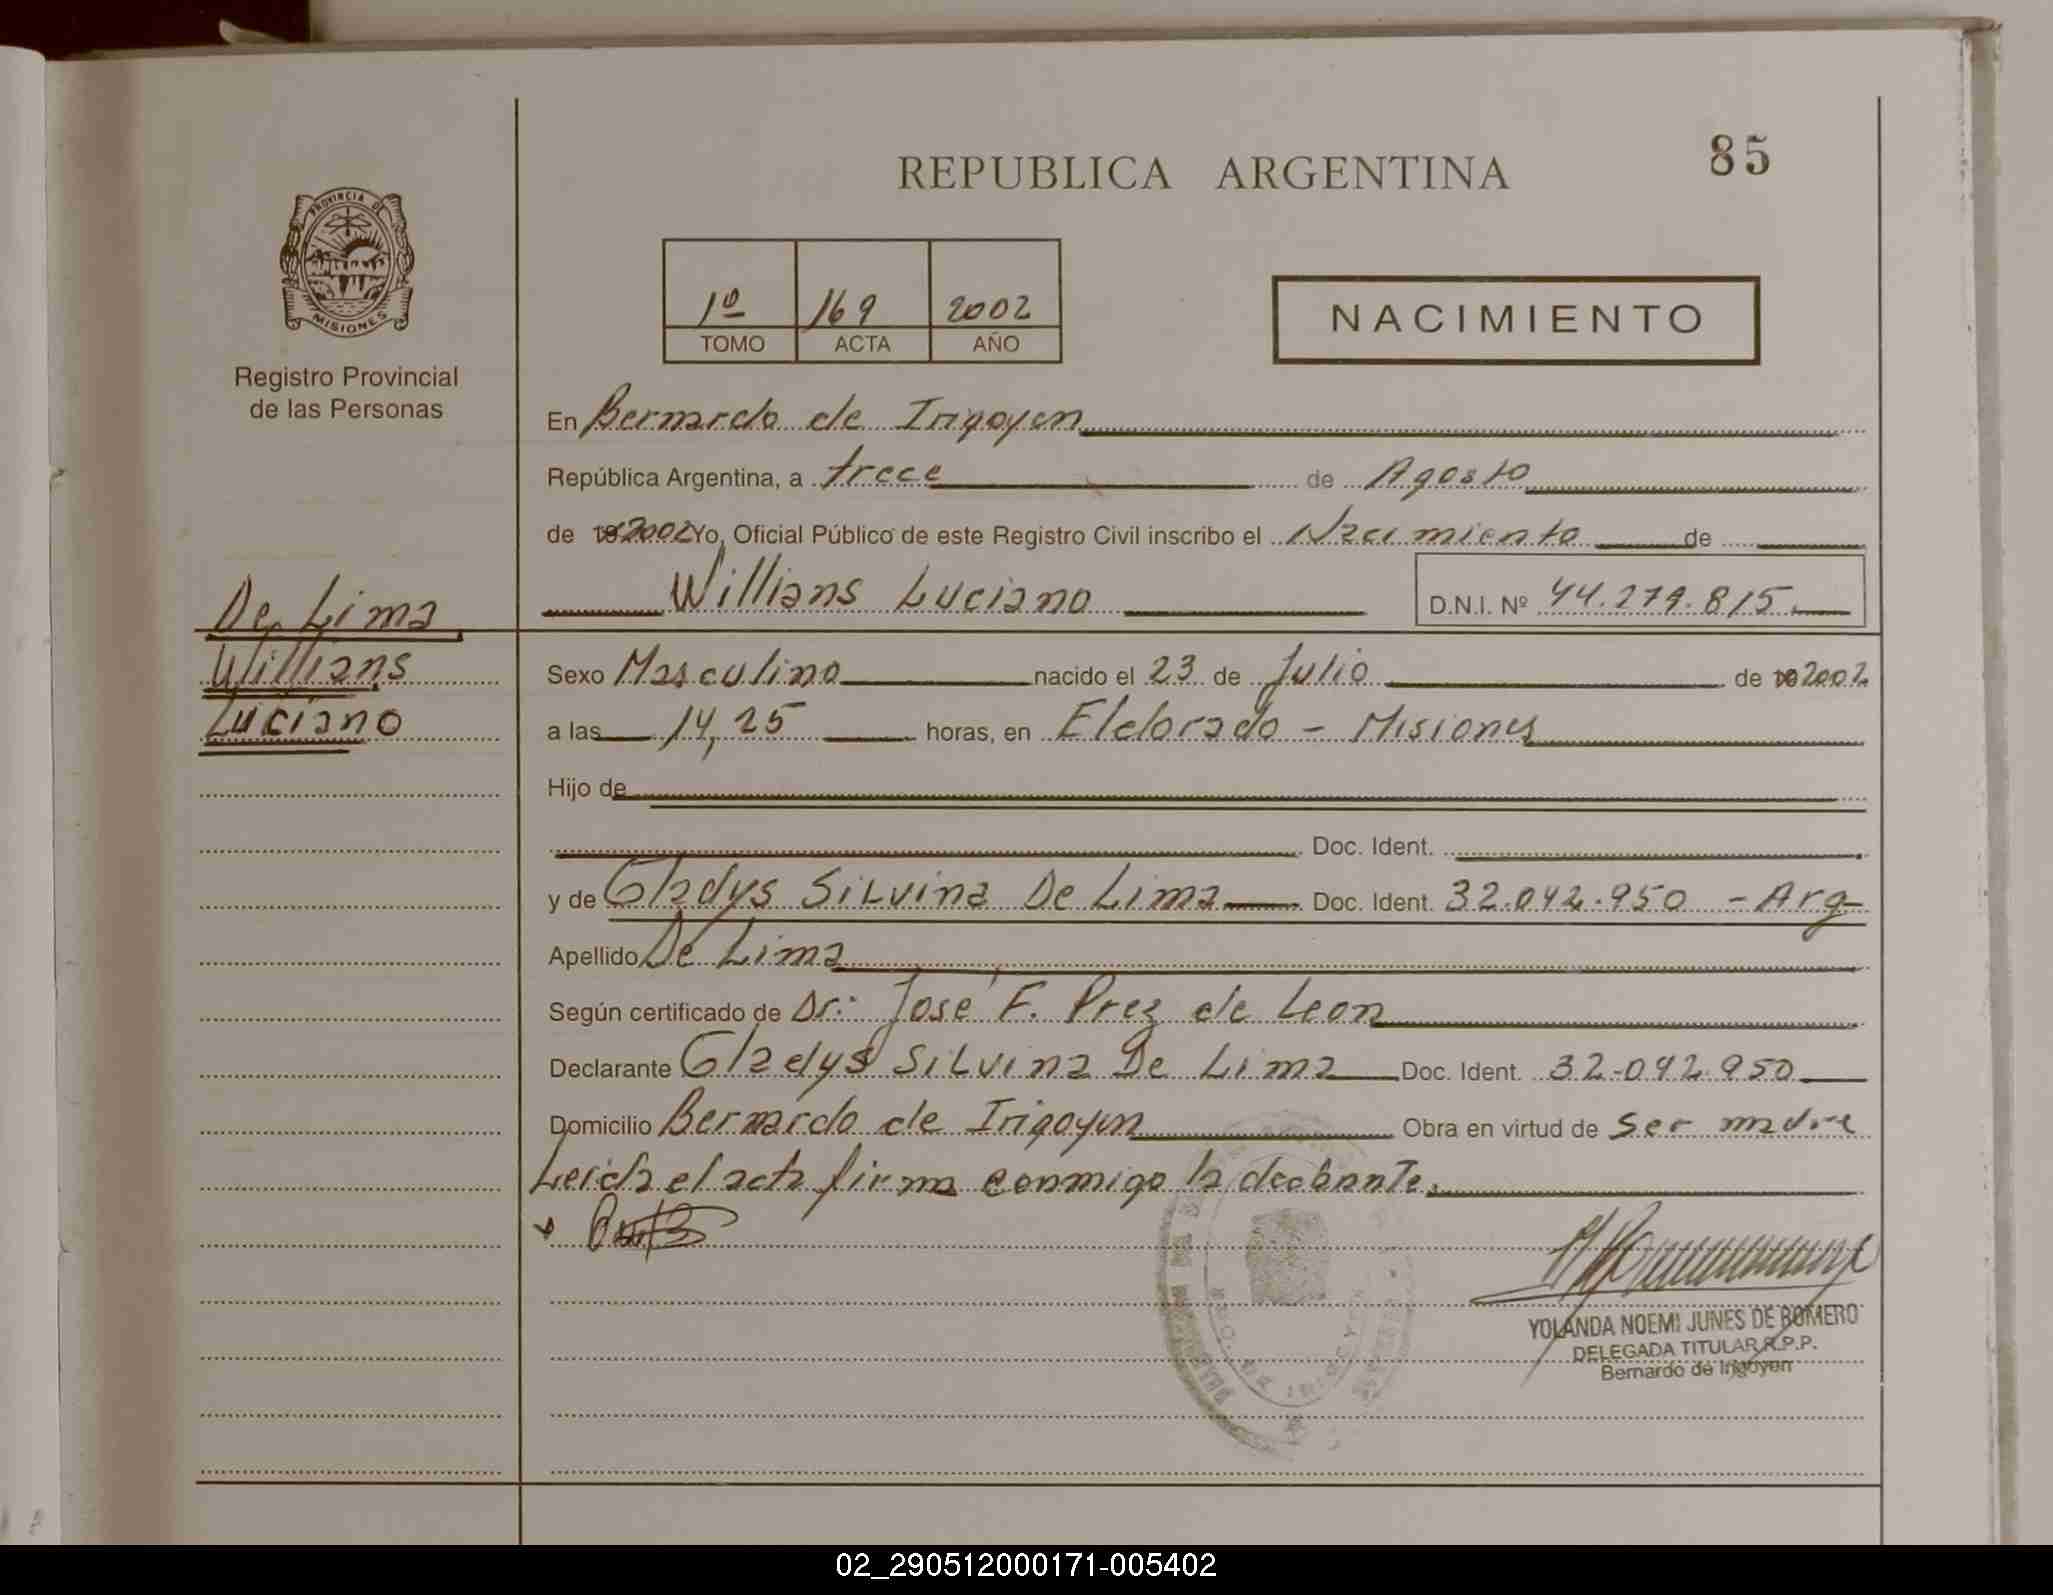 85
REPUBLICA ARGENTINA
PROVINCIA DE
MISIONES
Registro Provincial
de las Personas
1º 169 2002
TOMO ACTA AÑO
NACIMIENTO
En Bernardo de Irigoyen
República Argentina, a trece de Agosto
de 19 2002 Yo, Oficial Público de este Registro Civil inscribo el Nacimiento de
Willians Luciano D.N.I. Nº 44.279.815
De Lima
Willians
Luciano
Sexo Masculino nacido el 23 de Julio de 19 2002
a las 14,25 horas, en Eldorado - Misiones
Hijo de
Doc. Ident.
y de Gladys Silvina De Lima Doc. Ident. 32.042.950 - Arg
Apellido De Lima
Según certificado de Dr: José F. Prez de Leon
Declarante Gladys Silvina De Lima Doc. Ident. 32.042.950
Domicilio Bernardo de Irigoyen Obra en virtud de ser madre
Leida el acta firma conmigo la declarante.
YOLANDA NOEMI JUNES DE ROMERO
DELEGADA TITULAR R.P.P.
Bernardo de Irigoyen
02_290512000171-005402